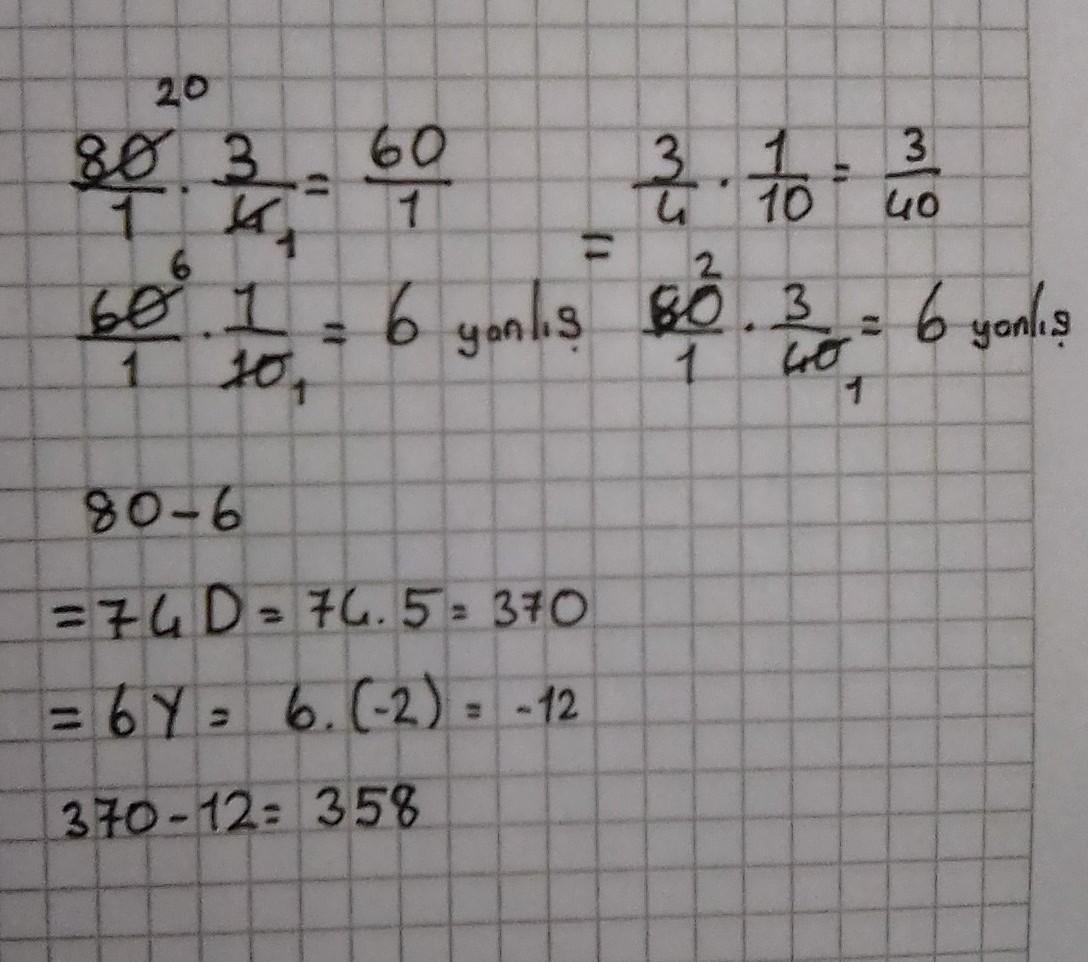 20
80/1 . 3/4 1 = 60/1 = 3/4 . 1/10 = 3/40
60/1 6 . 1/10 1 = 6 yanlış 80/1 2 . 3/40 1 = 6 yanlış
80-6
=74 D = 74.5 = 370
= 6 Y = 6.(-2) = -12
370-12= 358